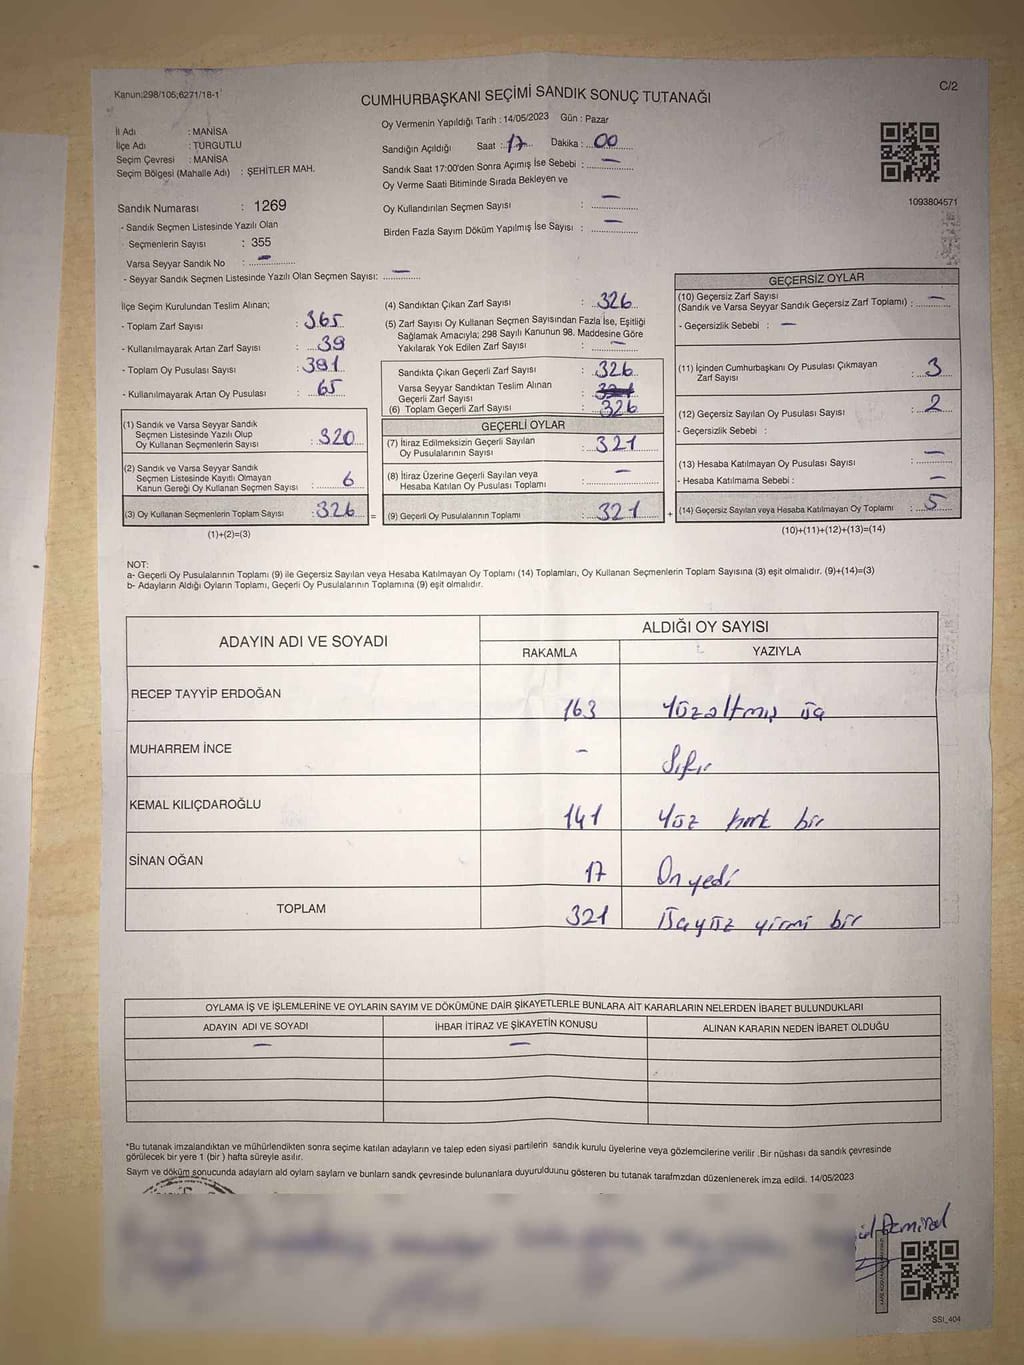 Kanun;298/105;6271/18-1
C/2
CUMHURBAŞKANI SEÇİMİ SANDIK SONUÇ TUTANAĞI
İl Adı : MANİSA
İlçe Adı : TURGUTLU
Seçim Çevresi : MANİSA
Seçim Bölgesi (Mahalle Adı) : ŞEHİTLER MAH.
Sandık Numarası : 1269
- Sandık Seçmen Listesinde Yazılı Olan
Seçmenlerin Sayısı : 355
Varsa Seyyar Sandık No : -
- Seyyar Sandık Seçmen Listesinde Yazılı Olan Seçmen Sayısı: -
Oy Vermenin Yapıldığı Tarih : 14/05/2023 Gün : Pazar
Sandığın Açıldığı Saat : 17 Dakika : 00
Sandık Saat 17:00'den Sonra Açımış İse Sebebi : -
Oy Verme Saati Bitiminde Sırada Bekleyen ve
Oy Kullandırılan Seçmen Sayısı : -
Birden Fazla Sayım Döküm Yapılmış İse Sayısı : -
1093804571
İlçe Seçim Kurulundan Teslim Alınan;
- Toplam Zarf Sayısı : 365
- Kullanılmayarak Artan Zarf Sayısı : 39
- Toplam Oy Pusulası Sayısı : 391
- Kullanılmayarak Artan Oy Pusulası : 65
(1) Sandık ve Varsa Seyyar Sandık
Seçmen Listesinde Yazılı Olup
Oy Kullanan Seçmenlerin Sayısı : 320
(2) Sandık ve Varsa Seyyar Sandık
Seçmen Listesinde Kayıtlı Olmayan
Kanun Gereği Oy Kullanan Seçmen Sayısı : 6
(3) Oy Kullanan Seçmenlerin Toplam Sayısı : 326 =
(1)+(2)=(3)
(4) Sandıktan Çıkan Zarf Sayısı : 326
(5) Zarf Sayısı Oy Kullanan Seçmen Sayısından Fazla İse, Eşitliği
Sağlamak Amacıyla; 298 Sayılı Kanunun 98. Maddesine Göre
Yakılarak Yok Edilen Zarf Sayısı : -
Sandıkta Çıkan Geçerli Zarf Sayısı : 326
Varsa Seyyar Sandıktan Teslim Alınan
Geçerli Zarf Sayısı : 321
(6) Toplam Geçerli Zarf Sayısı : 326
GEÇERLİ OYLAR
(7) İtiraz Edilmeksizin Geçerli Sayılan
Oy Pusulalarının Sayısı : 321
(8) İtiraz Üzerine Geçerli Sayılan veya
Hesaba Katılan Oy Pusulası Toplamı : -
(9) Geçerli Oy Pusulalarının Toplamı : 321 +
GEÇERSİZ OYLAR
(10) Geçersiz Zarf Sayısı
(Sandık ve Varsa Seyyar Sandık Geçersiz Zarf Toplamı) : -
- Geçersizlik Sebebi : -
(11) İçinden Cumhurbaşkanı Oy Pusulası Çıkmayan
Zarf Sayısı : 3
(12) Geçersiz Sayılan Oy Pusulası Sayısı : 2
- Geçersizlik Sebebi :
(13) Hesaba Katılmayan Oy Pusulası Sayısı : -
- Hesaba Katılmama Sebebi : -
(14) Geçersiz Sayılan veya Hesaba Katılmayan Oy Toplamı : 5
(10)+(11)+(12)+(13)=(14)
NOT:
a- Geçerli Oy Pusulalarının Toplamı (9) ile Geçersiz Sayılan veya Hesaba Katılmayan Oy Toplamı (14) Toplamları, Oy Kullanan Seçmenlerin Toplam Sayısına (3) eşit olmalıdır. (9)+(14)=(3)
b- Adayların Aldığı Oyların Toplamı, Geçerli Oy Pusulalarının Toplamına (9) eşit olmalıdır.
ADAYIN ADI VE SOYADI
ALDIĞI OY SAYISI
RAKAMLA YAZIYLA
RECEP TAYYİP ERDOĞAN 163 Yüzaltmış üç
MUHARREM İNCE - Sıfır
KEMAL KILIÇDAROĞLU 141 Yüz kırk bir
SİNAN OĞAN 17 On yedi
TOPLAM 321 Üçyüz yirmi bir
OYLAMA İŞ VE İŞLEMLERİNE VE OYLARIN SAYIM VE DÖKÜMÜNE DAİR ŞİKAYETLERLE BUNLARA AİT KARARLARIN NELERDEN İBARET BULUNDUKLARI
ADAYIN ADI VE SOYADI İHBAR İTİRAZ VE ŞİKAYETİN KONUSU ALINAN KARARIN NEDEN İBARET OLDUĞU
- -
*Bu tutanak imzalandıktan ve mühürlendikten sonra seçime katılan adayların ve talep eden siyasi partilerin sandık kurulu üyelerine veya gözlemcilerine verilir .Bir nüshası da sandık çevresinde
görülecek bir yere 1 (bir ) hafta süreyle asılır.
Sayım ve döküm sonucunda adayların ald oyların sayları ve bunların sandk çevresinde bulunanlara duyurulduunu gösteren bu tutanak tarafımzdan düzenlenerek imza edildi. 14/05/2023
Demirel
SSI_404